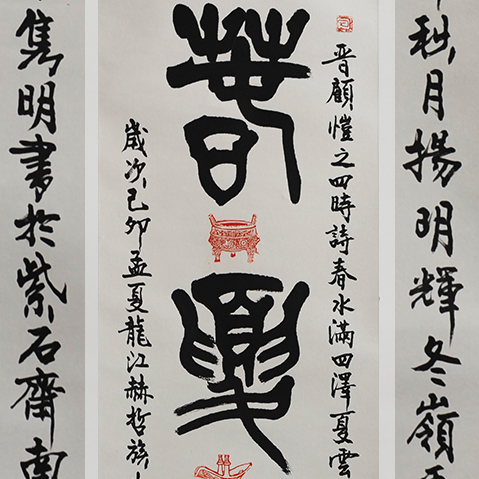 秋月揚明輝冬嶺
晋顧愷之四時詩春水滿四澤夏雲
春夏
歲次己卯孟夏龍江赫哲族
雋明書於紫石齋南